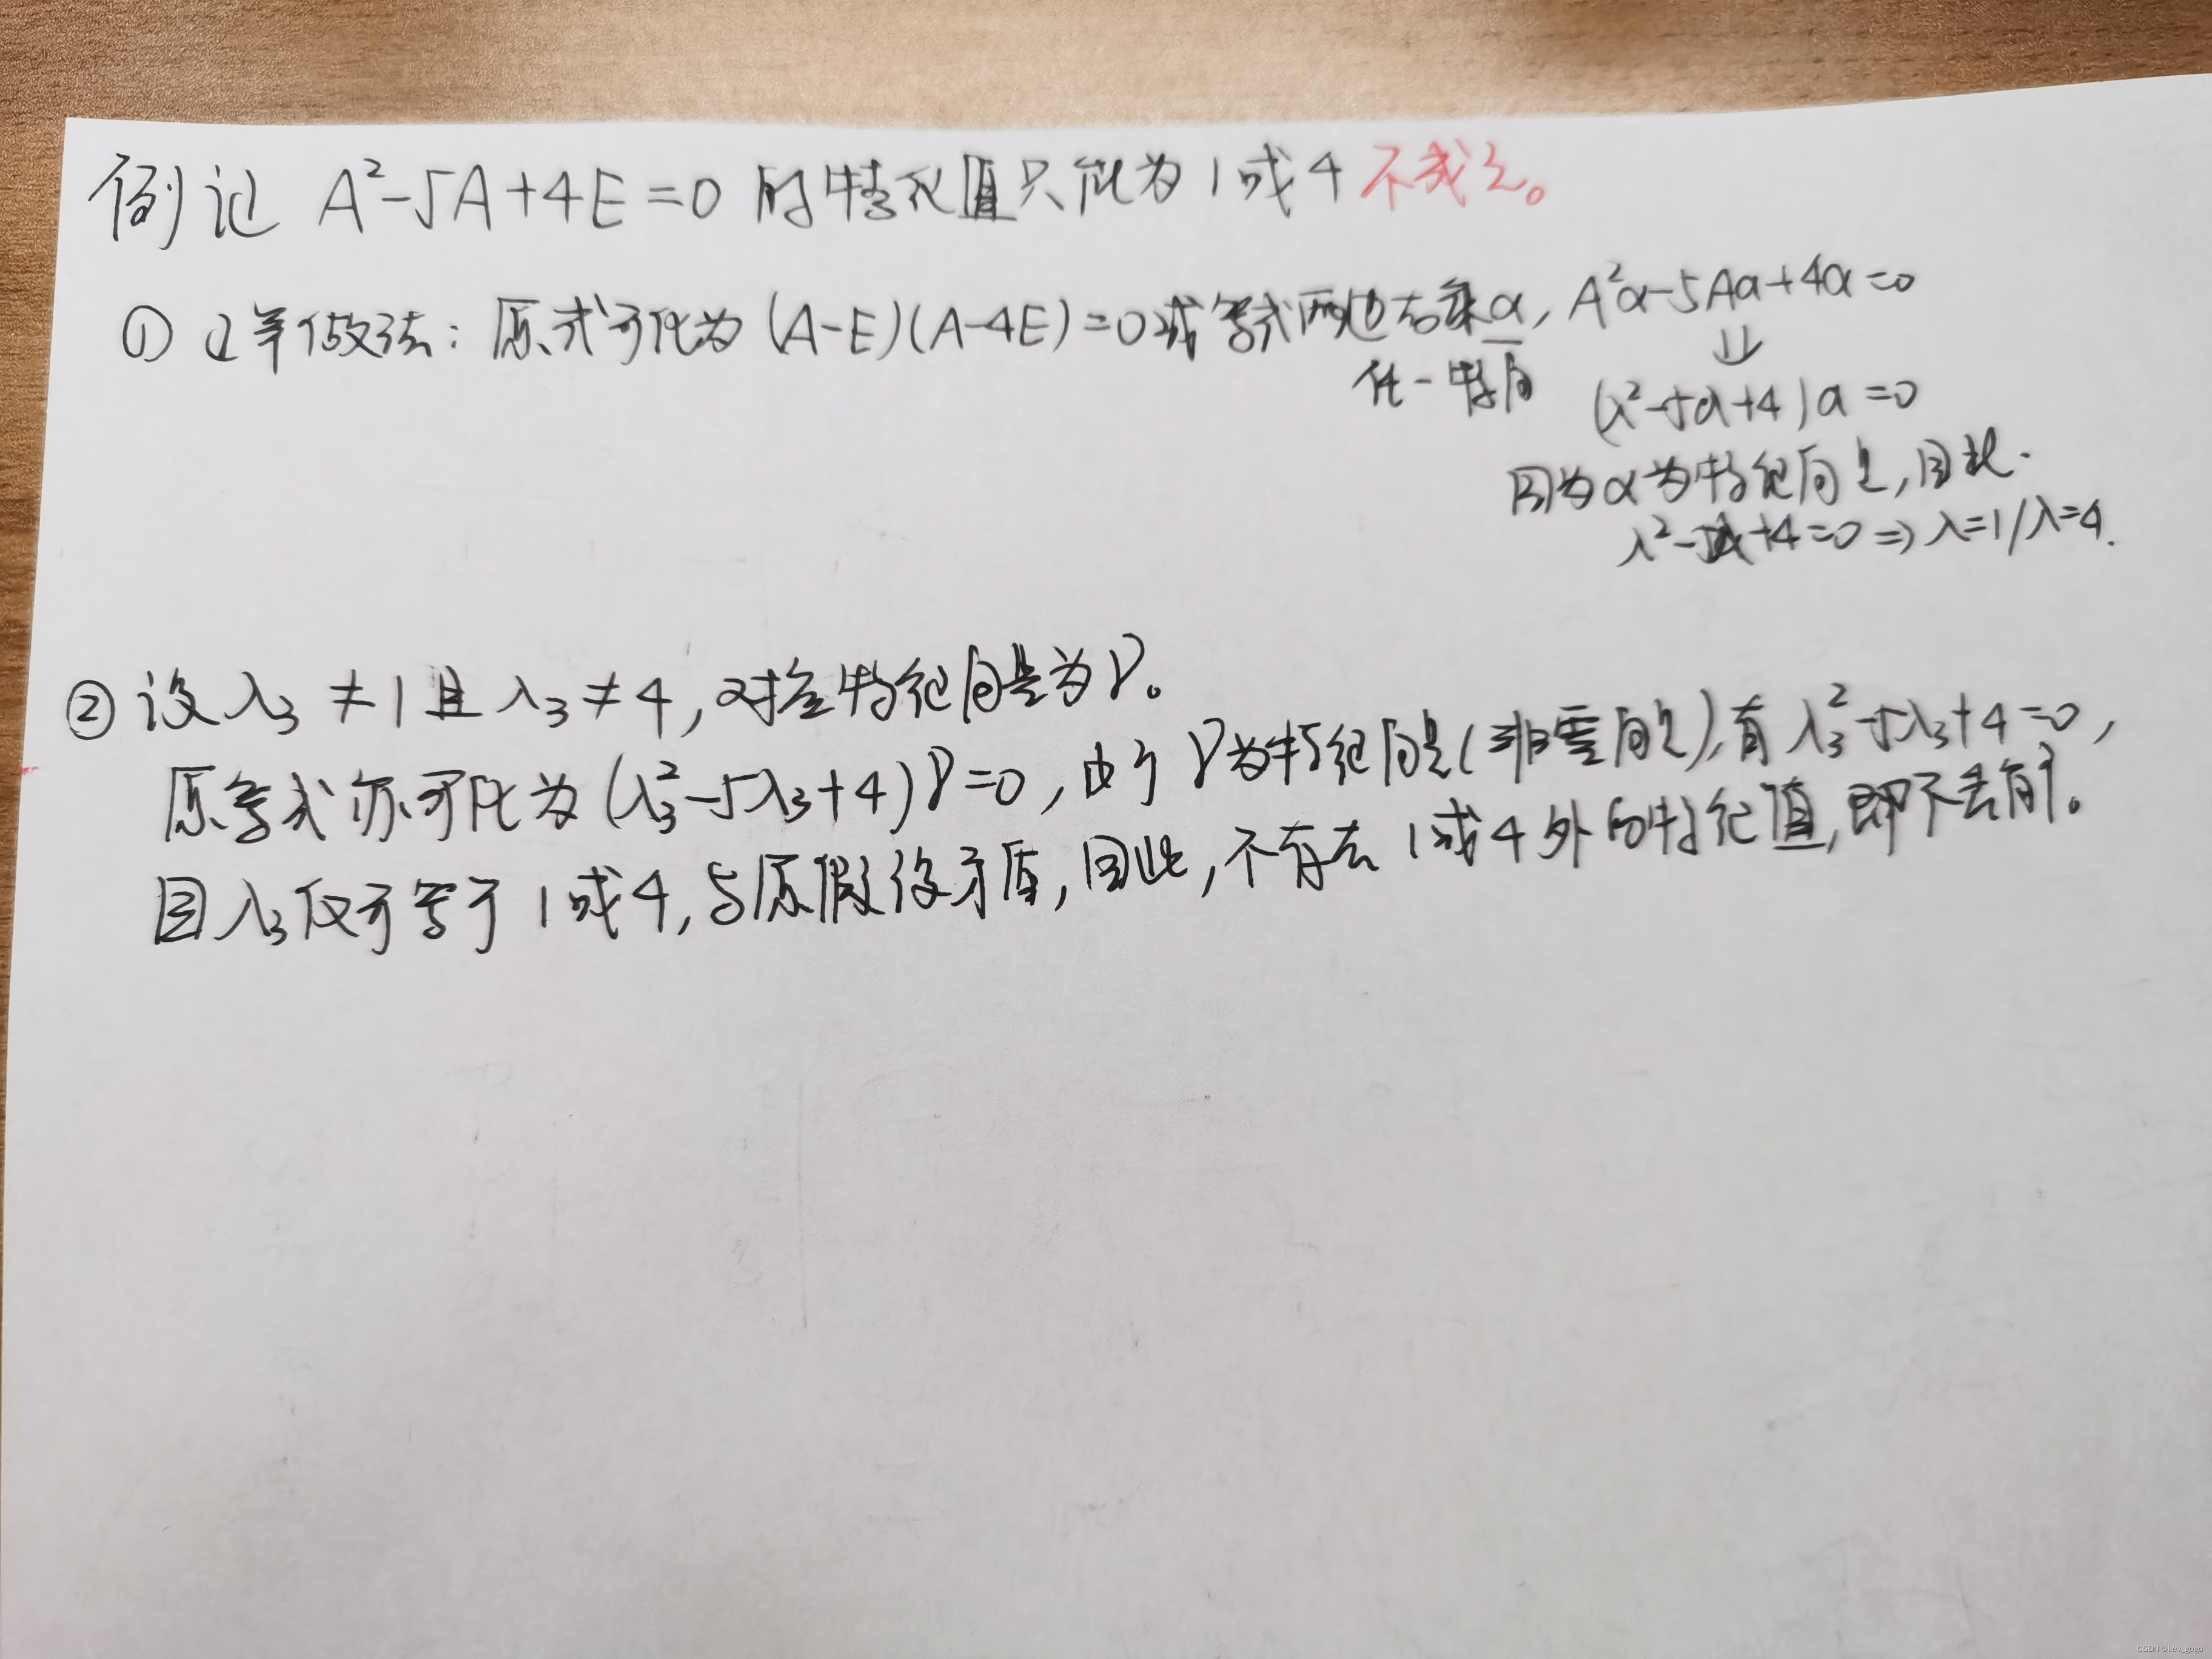 例 证 A²-5A+4E=0 的特征值只能为1或4 不成立。
① 以羊做法:原式可化为 (A-E)(A-4E)=0 或等式两边右乘α, A²α-5Aα+4α=0
⇓
任一特向
(λ²-5λ+4)α=0
因为α为特征向量,因此.
λ²-5λ+4=0⇒λ=1/λ=4.
② 设λ₃≠1且λ₃≠4,对应特征向量为γ。
原等式亦可化为(λ₃²-5λ₃+4)γ=0,由于γ为特征向量(非零向量),有λ₃²-5λ₃+4=0,
因λ₃仅可等于1或4,与原假设矛盾,因此,不存在1或4外的特征值,即不丢解。
CSDN @key_gogo